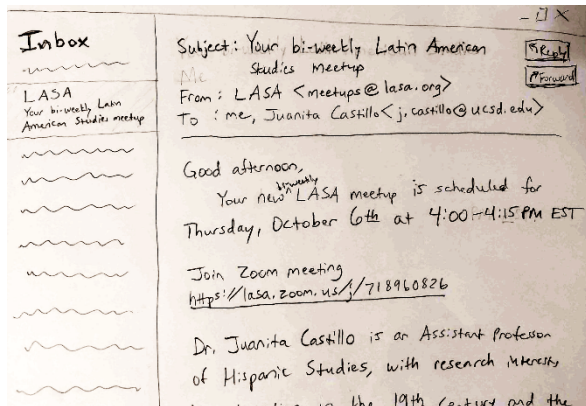 Inbox
LASA
Your bi-weekly Latin
American Studies meetup
Subject: Your bi-weekly Latin American
Studies meetup
From: LASA <meetups@lasa.org>
To: me, Juanita Castillo <j.castillo@ucsd.edu>
Reply
Forward
Good afternoon,
Your new bi-weekly LASA meetup is scheduled for
Thursday, October 6th at 4:00-4:15 PM EST
Join Zoom meeting
https://lasa.zoom.us/j/718960826
Dr. Juanita Castillo is an Assistant Professor
of Hispanic Studies, with research interests
the 19th Century and the